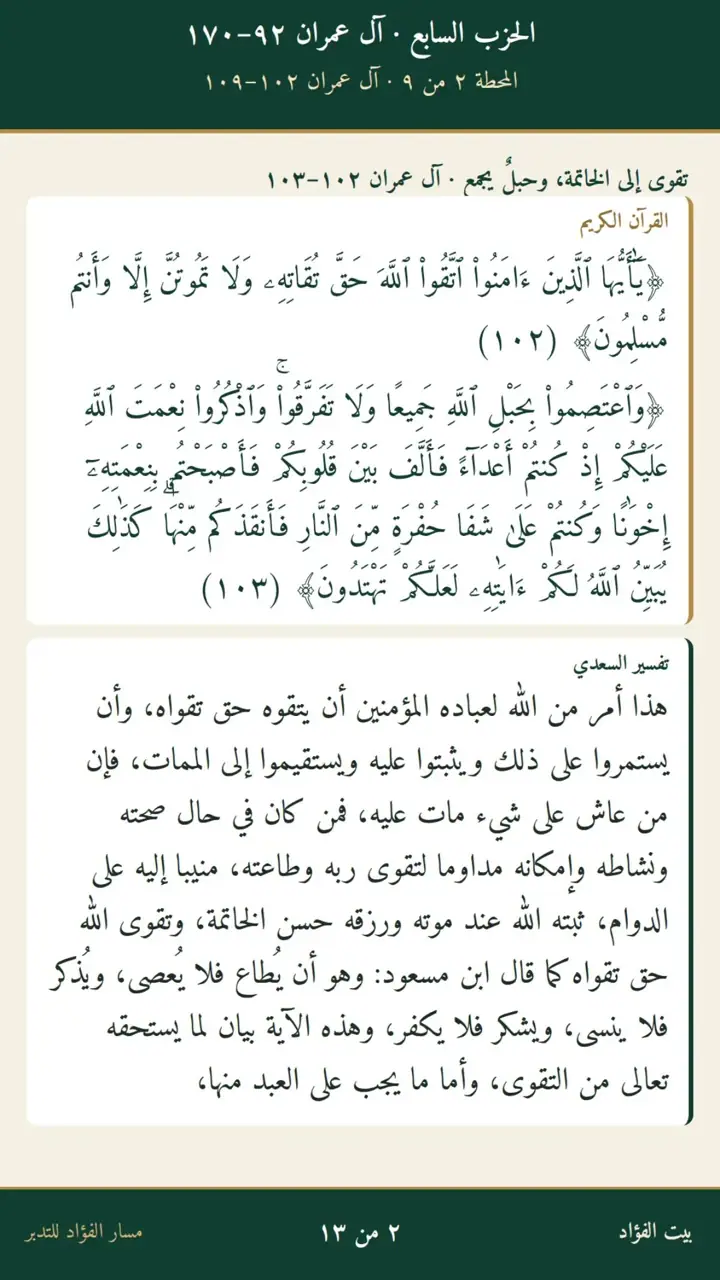 الحزب السابع · آل عمران ٩٢–١٧٠
المحطة ٢ من ٩ · آل عمران ١٠٢–١٠٩
تقوى إلى الخاتمة، وحبلٌ يجمع · آل عمران ١٠٢–١٠٣
القرآن الكريم
﴿يَٰٓأَيُّهَا ٱلَّذِينَ ءَامَنُوا۟ ٱتَّقُوا۟ ٱللَّهَ حَقَّ تُقَاتِهِۦ وَلَا تَمُوتُنَّ إِلَّا وَأَنتُم
مُّسْلِمُونَ﴾ (١٠٢)
﴿وَٱعْتَصِمُوا۟ بِحَبْلِ ٱللَّهِ جَمِيعًا وَلَا تَفَرَّقُوا۟ۚ وَٱذْكُرُوا۟ نِعْمَتَ ٱللَّهِ
عَلَيْكُمْ إِذْ كُنتُمْ أَعْدَآءً فَأَلَّفَ بَيْنَ قُلُوبِكُمْ فَأَصْبَحْتُم بِنِعْمَتِهِۦٓ
إِخْوَٰنًا وَكُنتُمْ عَلَىٰ شَفَا حُفْرَةٍ مِّنَ ٱلنَّارِ فَأَنقَذَكُم مِّنْهَاۗ كَذَٰلِكَ
يُبَيِّنُ ٱللَّهُ لَكُمْ ءَايَٰتِهِۦ لَعَلَّكُمْ تَهْتَدُونَ﴾ (١٠٣)
تفسير السعدي
هذا أمر من الله لعباده المؤمنين أن يتقوه حق تقواه، وأن
يستمروا على ذلك ويثبتوا عليه ويستقيموا إلى الممات، فإن
من عاش على شيء مات عليه، فمن كان في حال صحته
ونشاطه وإمكانه مداوما لتقوى ربه وطاعته، منيبا إليه على
الدوام، ثبته الله عند موته ورزقه حسن الخاتمة، وتقوى الله
حق تقواه كما قال ابن مسعود: وهو أن يُطاع فلا يُعصى، ويُذكر
فلا ينسى، ويشكر فلا يكفر، وهذه الآية بيان لما يستحقه
تعالى من التقوى، وأما ما يجب على العبد منها،
بيت الفؤاد
٢ من ١٣
مسار الفؤاد للتدبر